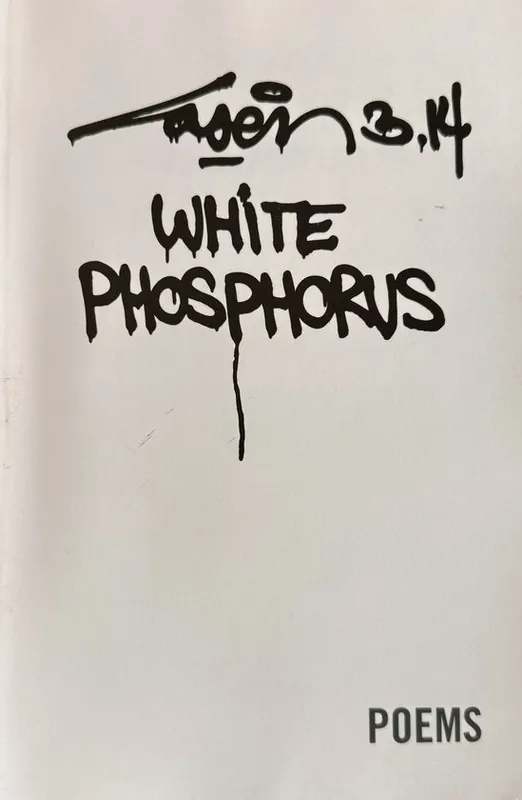 Laser 3.14
WHITE
PHOSPHORUS
POEMS